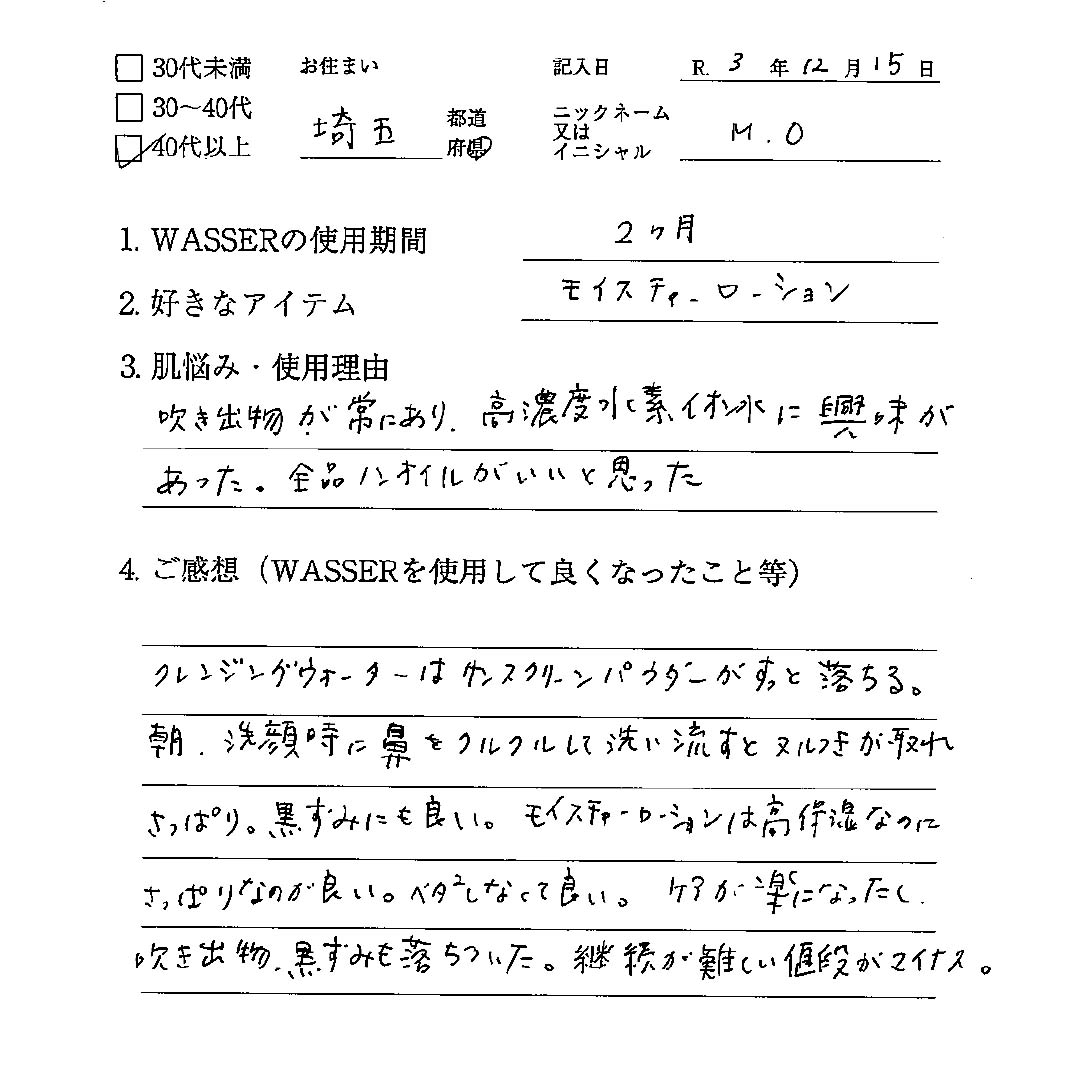 30代未満 お住まい 記入日 R. 3 年 12 月 15 日
30〜40代 埼玉 都道府県 ニックネーム又はイニシャル M.O
40代以上
1. WASSERの使用期間 2ヶ月
2. 好きなアイテム モイスチャーローション
3. 肌悩み・使用理由
吹き出物が常にあり、高濃度水素イオン水に興味が
あった。全品ノンオイルがいいと思った
4. ご感想（WASSERを使用して良くなったこと等）
クレンジングウォーターはサンスクリーンパウダーがすっと落ちる。
朝、洗顔時に鼻をクルクルして洗い流すとヌルつきが取れ
さっぱり。黒ずみにも良い。モイスチャーローションは高保湿なのに
さっぱりなのが良い。ベタベタしなくて良い。ケアが楽になったし、
吹き出物、黒ずみも落ちついた。継続が難しい値段がマイナス。